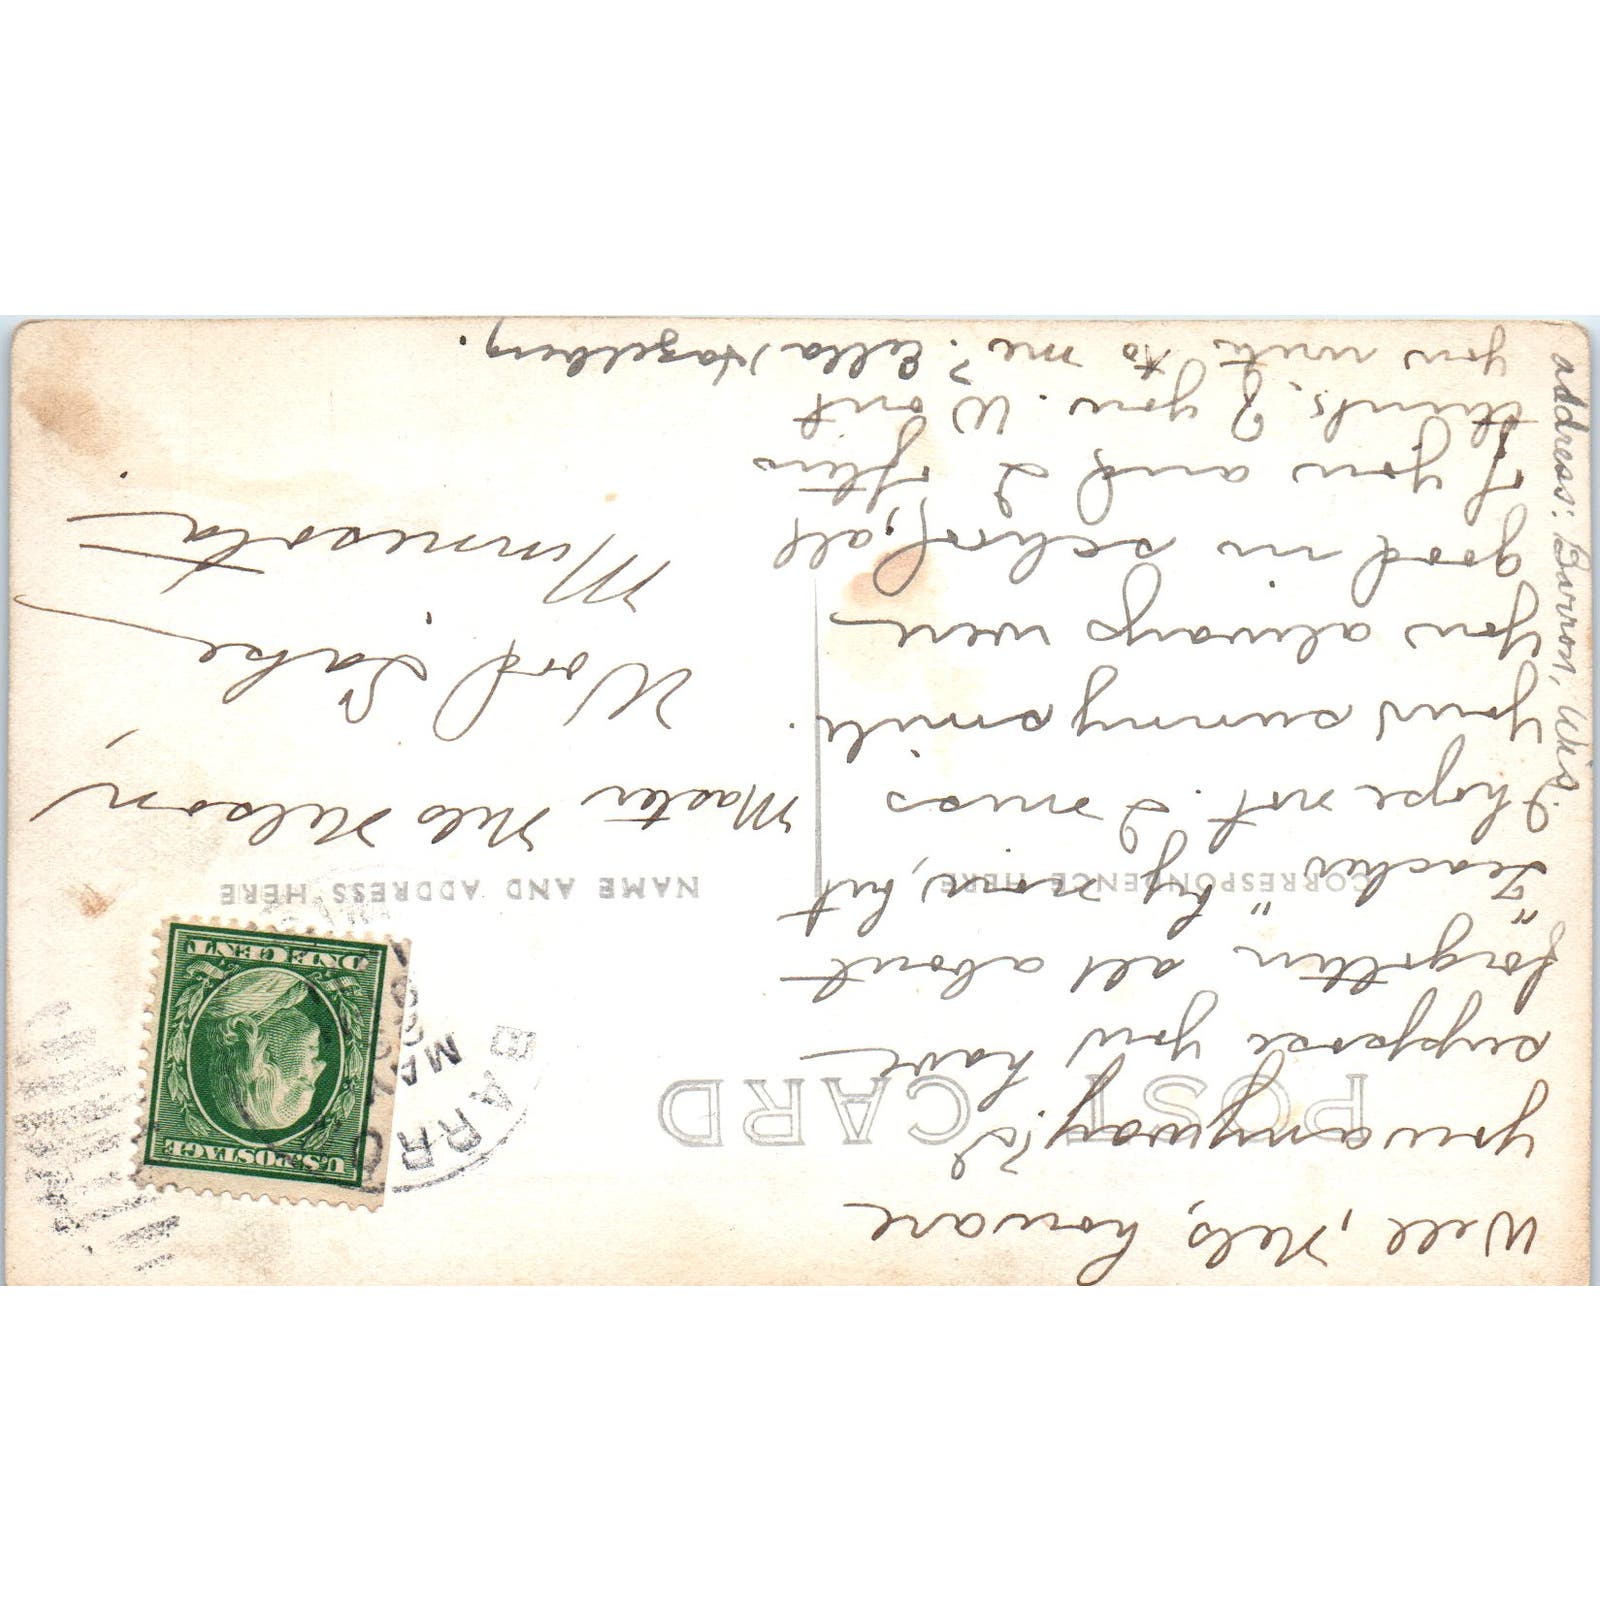 Well, Nels, how are
you anyway? I
suppose you have
forgotten all about
"Teacher" by now, but
I hope not. I miss
your sunny smile.
You always were
good in school, all
of you and I often
think of you. Wont
you write to me? Ella Hagelberg.
address: Barron, Wis.
POST CARD
CORRESPONDENCE HERE
NAME AND ADDRESS HERE
Master Nels Nelson,
Word Lake,
Minnesota.
BARRO
MAY
U.S. POSTAGE
ONE CENT